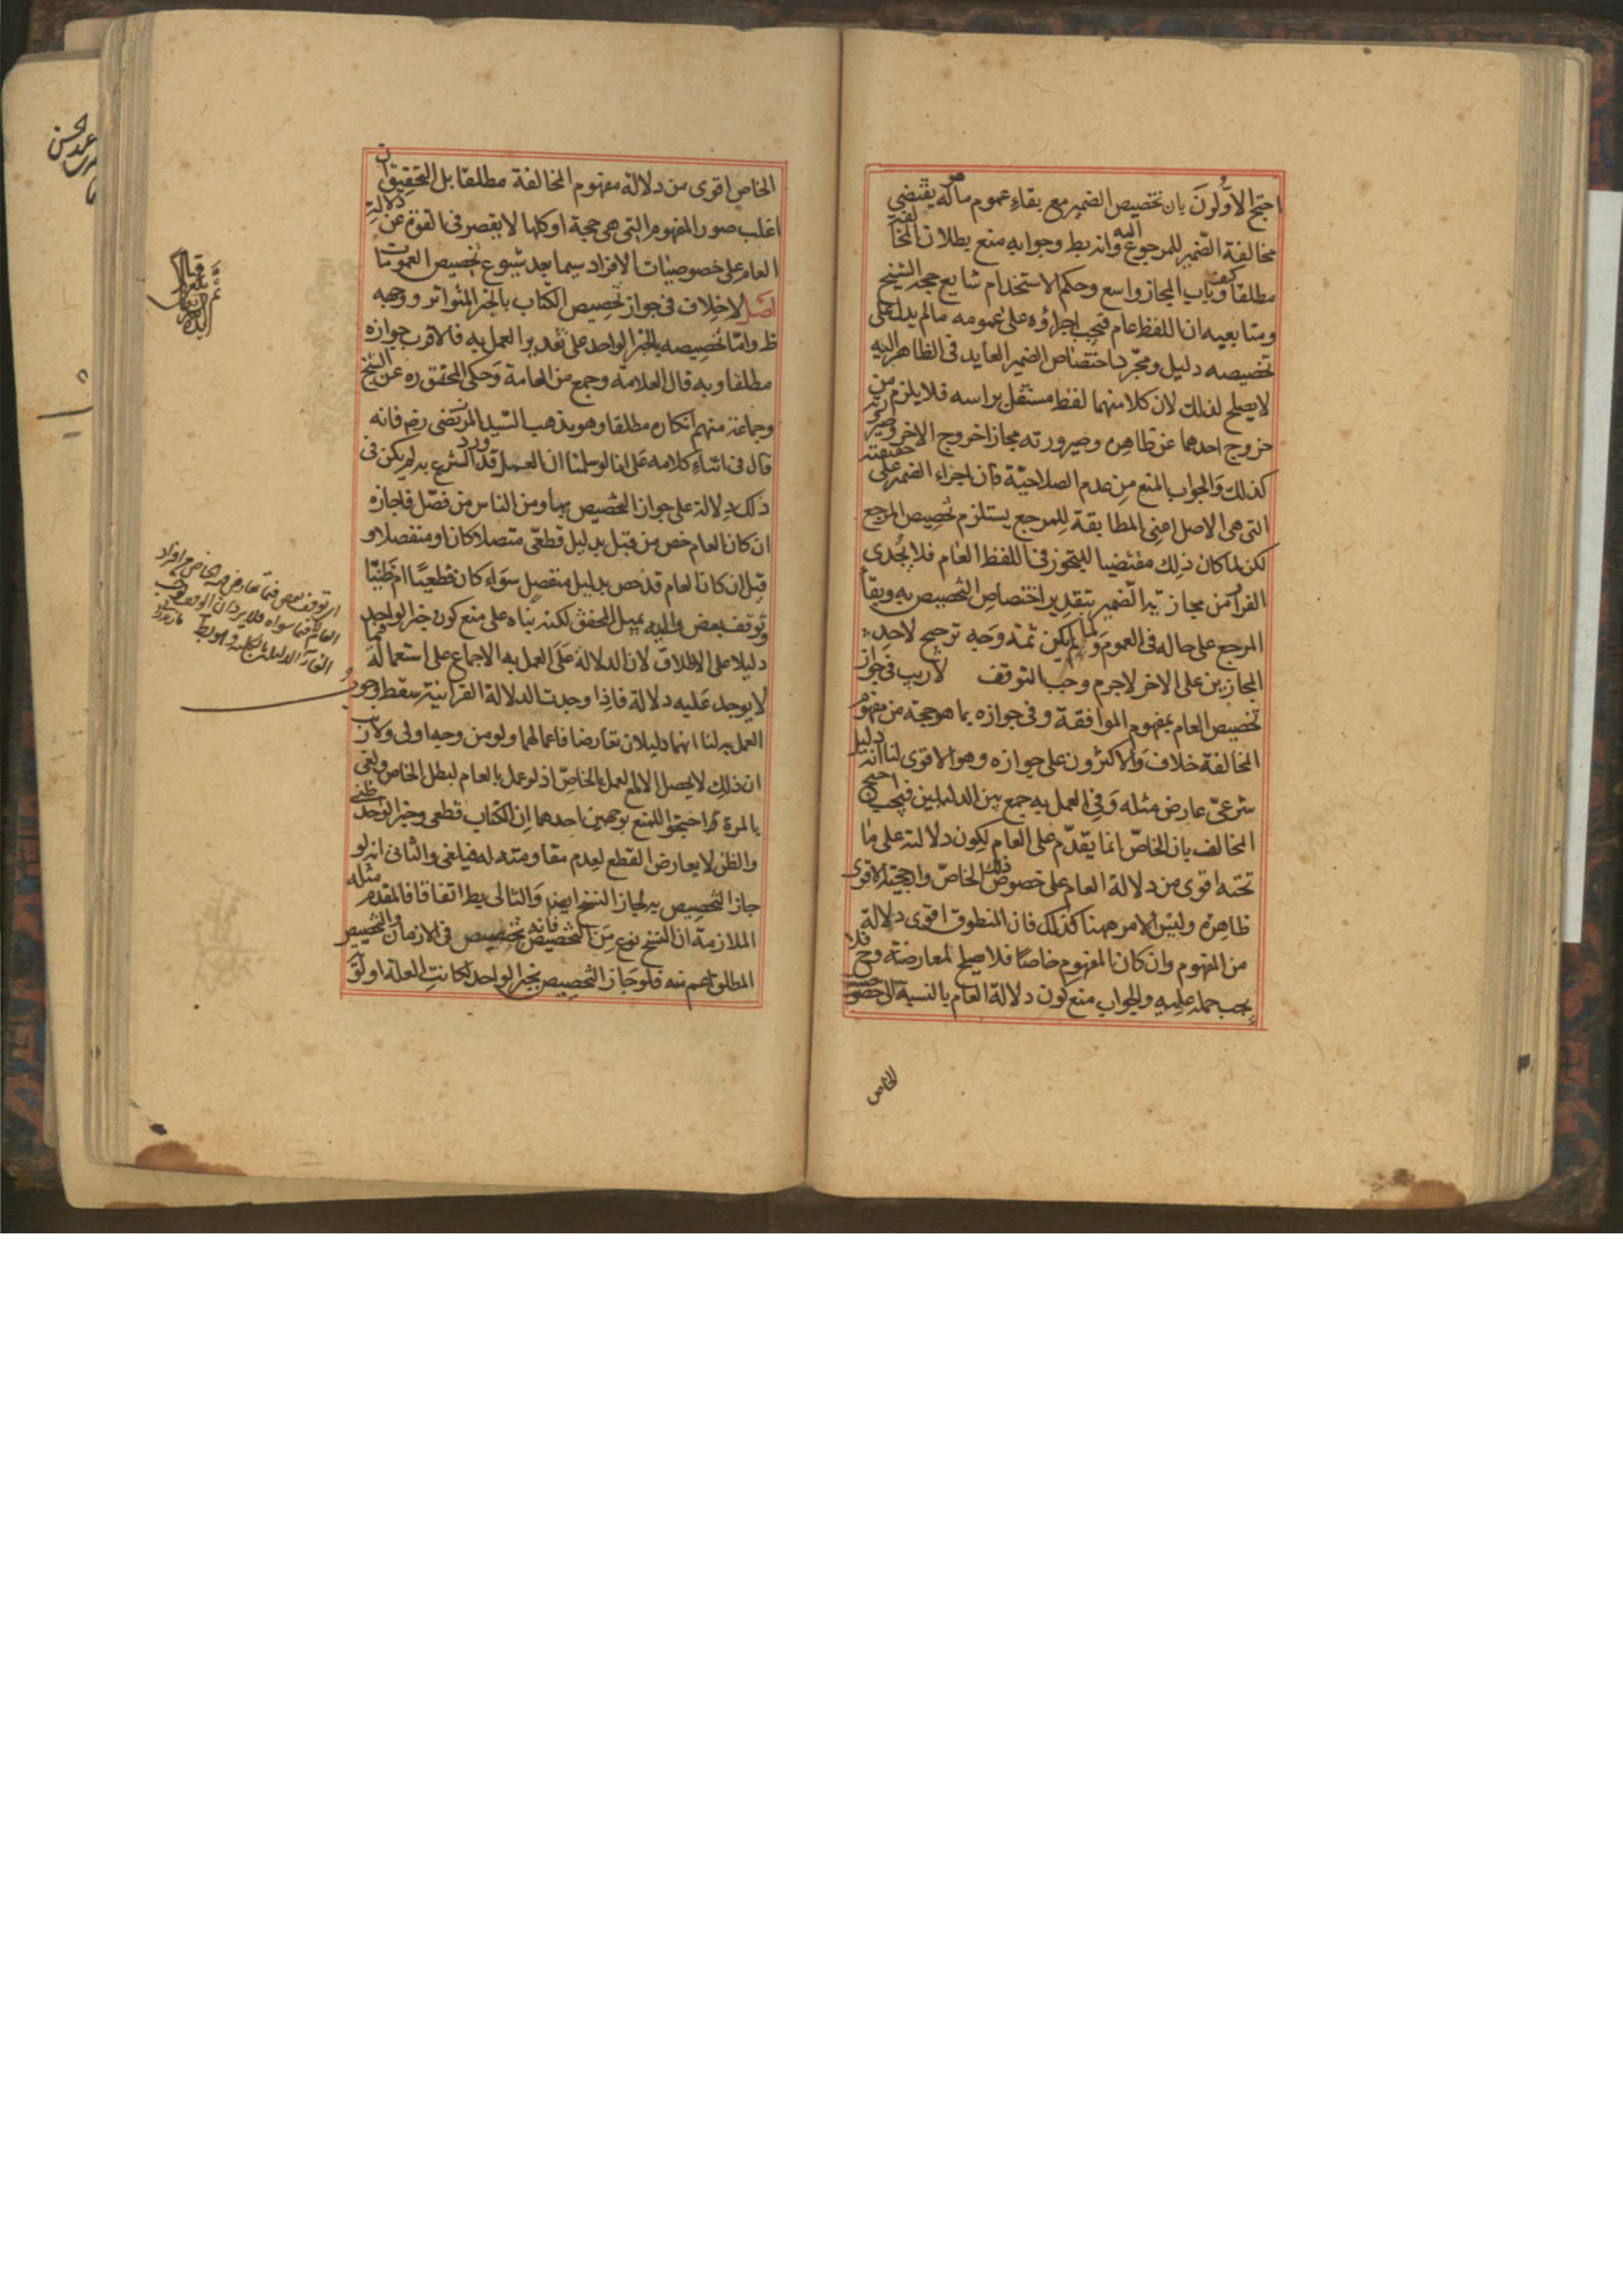 احتج الاولون بان تخصيص الضمير مع بقاء عموم ما هو له يقتضي
مخالفة الضمير للمرجوع اليه وانه يط وجوابه منع بطلان المخالفة
مطلقا كيف وباب المجاز واسع وحكم الاستخدام شايع حجة الشيخ
ومتابعيه ان اللفظ عام فيجب اجراؤه على عمومه ما لم يدل على
تخصيصه دليل ومجرد اختصاص الضمير العايد في الظاهر اليه
لا يصلح لذلك لان كلا منهما لفظ مستقل براسه فلا يلزم من
خروج احدهما عن ظاهره وصيرورته مجازا خروج الاخر وصيرورته
كذلك والجواب المنع من عدم الصلاحية فان اجراء الضمير على حقيقته
التي هي الاصل اعني المطابقة للمرجع يستلزم تخصيص المرجع
لكن لما كان ذلك مقتضيا للتجوز في اللفظ العام فلا يجدي
الفرار من مجازية الضمير بتقدير اختصاص التخصيص به وبقاء
المرجع على حاله في العموم ولما لم يكن ثمة وجه ترجيح لاحد
المجازين على الاخر لا جرم وجب التوقف لا ريب في جواز
تخصيص العام بمفهوم الموافقة وفي جوازه بما هو حجة من مفهوم
المخالفة خلاف والاكثرون على جوازه وهو الاقوى لنا انه دليل
شرعي عارض مثله وفي العمل به جمع بين الدليلين فيجب احتج
المخالف بان الخاص انما يقدم على العام لكون دلالته على ما
تحته اقوى من دلالة العام على خصوص ذلك الخاص وارجحية الاقوى
ظاهرة وليس الامر ههنا كذلك فان المنطوق اقوى دلالة
من المفهوم وان كان المفهوم خاصا فلا يصلح لمعارضته وح فلا
يجب حمله عليه والجواب منع كون دلالة العام بالنسبة الى خصوصية
الخاص
الخاص اقوى من دلالة مفهوم المخالفة مطلقا بل التحقيق ان
اغلب صور المفهوم التي هي حجة او كلها لا يقصر في القوة عن دلالة
العام على خصوصيات الافراد سيما بعد شيوع تخصيص العمومات
اصل لا خلاف في جواز تخصيص الكتاب بالخبر المتواتر ووجهه
ظ واما تخصيصه بالخبر الواحد على تقدير العمل به فالاقرب جوازه
مطلقا وبه قال العلامة وجمع من العامة وحكى المحقق ره عن الشيخ
وجماعة منهم انكاره مطلقا وهو مذهب السيد المرتضى رض فانه
قال في اثناء كلامه على انا لو سلمنا ان العمل قد ورد الشرع به لم يكن في
ذلك دلالة على جواز التخصيص بها ومن الناس من فصل فاجازه
ان كان العام خص من قبل بدليل قطعي متصلا كان او منفصلا و
قيل ان كان العام قد خص بدليل منفصل سواء كان قطعيا ام ظنيا
وتوقف بعض واليه يميل المحقق لكنه بناه على منع كون خبر الواحد
دليلا على الاطلاق لان الدلالة على العمل به الاجماع على استعماله فيما
لا يوجد عليه دلالة فاذا وجدت الدلالة القرانية سقط وجوب
العمل به لنا انهما دليلان تعارضا فاعمالهما ولو من وجه اولى ولا ريب
ان ذلك لا يحصل الا مع العمل بالخاص اذ لو عمل بالعام لبطل الخاص ولغى
بالمرة احتجوا للمنع بوجهين احدهما ان الكتاب قطعي وخبر الواحد ظني
والظن لا يعارض القطع لعدم مقاومته له فيلغى والثاني انه لو
جاز التخصيص به لجاز النسخ ايضا والتالي بط اتفاقا فالمقدم مثله
الملازمة ان النسخ نوع من التخصيص فانه تخصيص في الازمان والتخصيص
المطلق اعم منه فلو جاز التخصيص بخبر الواحد لكانت العلة اولو